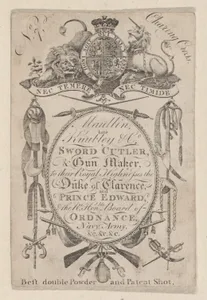 Charing Cross
NEC TEMERE NEC TIMIDE
Late
SWORD CUTLER,
& Gun Maker,
to their Royal Highnesses the
Duke of Clarence,
and
PRINCE EDWARD,
ORDNANCE,
Navy, Army,
&c. &c. &c.
Best double Powder and Patent Shot.